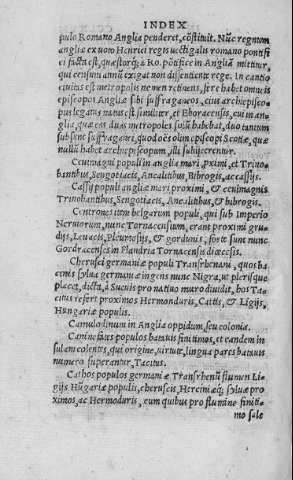 INDEX
pulo Romano Anglia penderet, cõstituit. Nũc regnum
anglia ex uoto Henrici regis uectigalis romano pontifi
ci facta est, quæstorq; à Ro. põtifice in Angliã mittitur,
qui censum annũ exigat non dissentiente rege. In cantio
ciuitas est metropolis nomen retinens, fere habet omneis
episcopos Angliæ sibi suffraganeos, eius archiepisco=
pus legatus natus est similiter, et Eboracensis, cui in an=
glia, quæ eas duas metropoleis solũ habebat, duo tantum
sub sunt suffraganei, quod oẽs olim episcopi Scotiæ, quæ
nullũ habet archiepiscopum, illi subijcerentur.
Cenimagni populi in anglia mari ,pximi, et Trino=
bantibus, Sengotiacis, Ancalitibus, Bibrogis, ac cassijs.
Cassij populi angliæ mari proximi, & cenimagnis
Trinobantibus, Sengotiacis, Ancalitibus, & bibrogis.
Centrones item belgarum populi, qui sub imperio
Neruiorum, nunc Tornacensium, erant proximi gru=
dijs, Leuacis, Pleumosijs, & gordunis, forte sunt nunc
Gordracenses in Flandria Tornacensis diœcesis.
Cherusci germaniæ populi Transrhenani, quos ba
cenis sylua germaniæ ingens nunc Nigra, ut plerisque
placet, dicta, à Sueuis pro natiuo muro diuidit, hos Ta=
citus refert proximos Hermonduris, Cattis, & Ligijs,
Hungariæ populis.
Camulodinum in Anglia oppidum, seu colonia.
Caninefates populos batauis finitimos, et eandem in
sulam colentes, qui origine, uirtute, lingua pares batauis
numero superantur, Tacitus.
Cathos populos germaniæ Transrhenũ flumen Li=
gijs Hũgariæ populis, cheruscis, Herciniæq; syluæ pro
ximos, ac Hermoduris, cum quibus pro flumine finiti=
mo sale